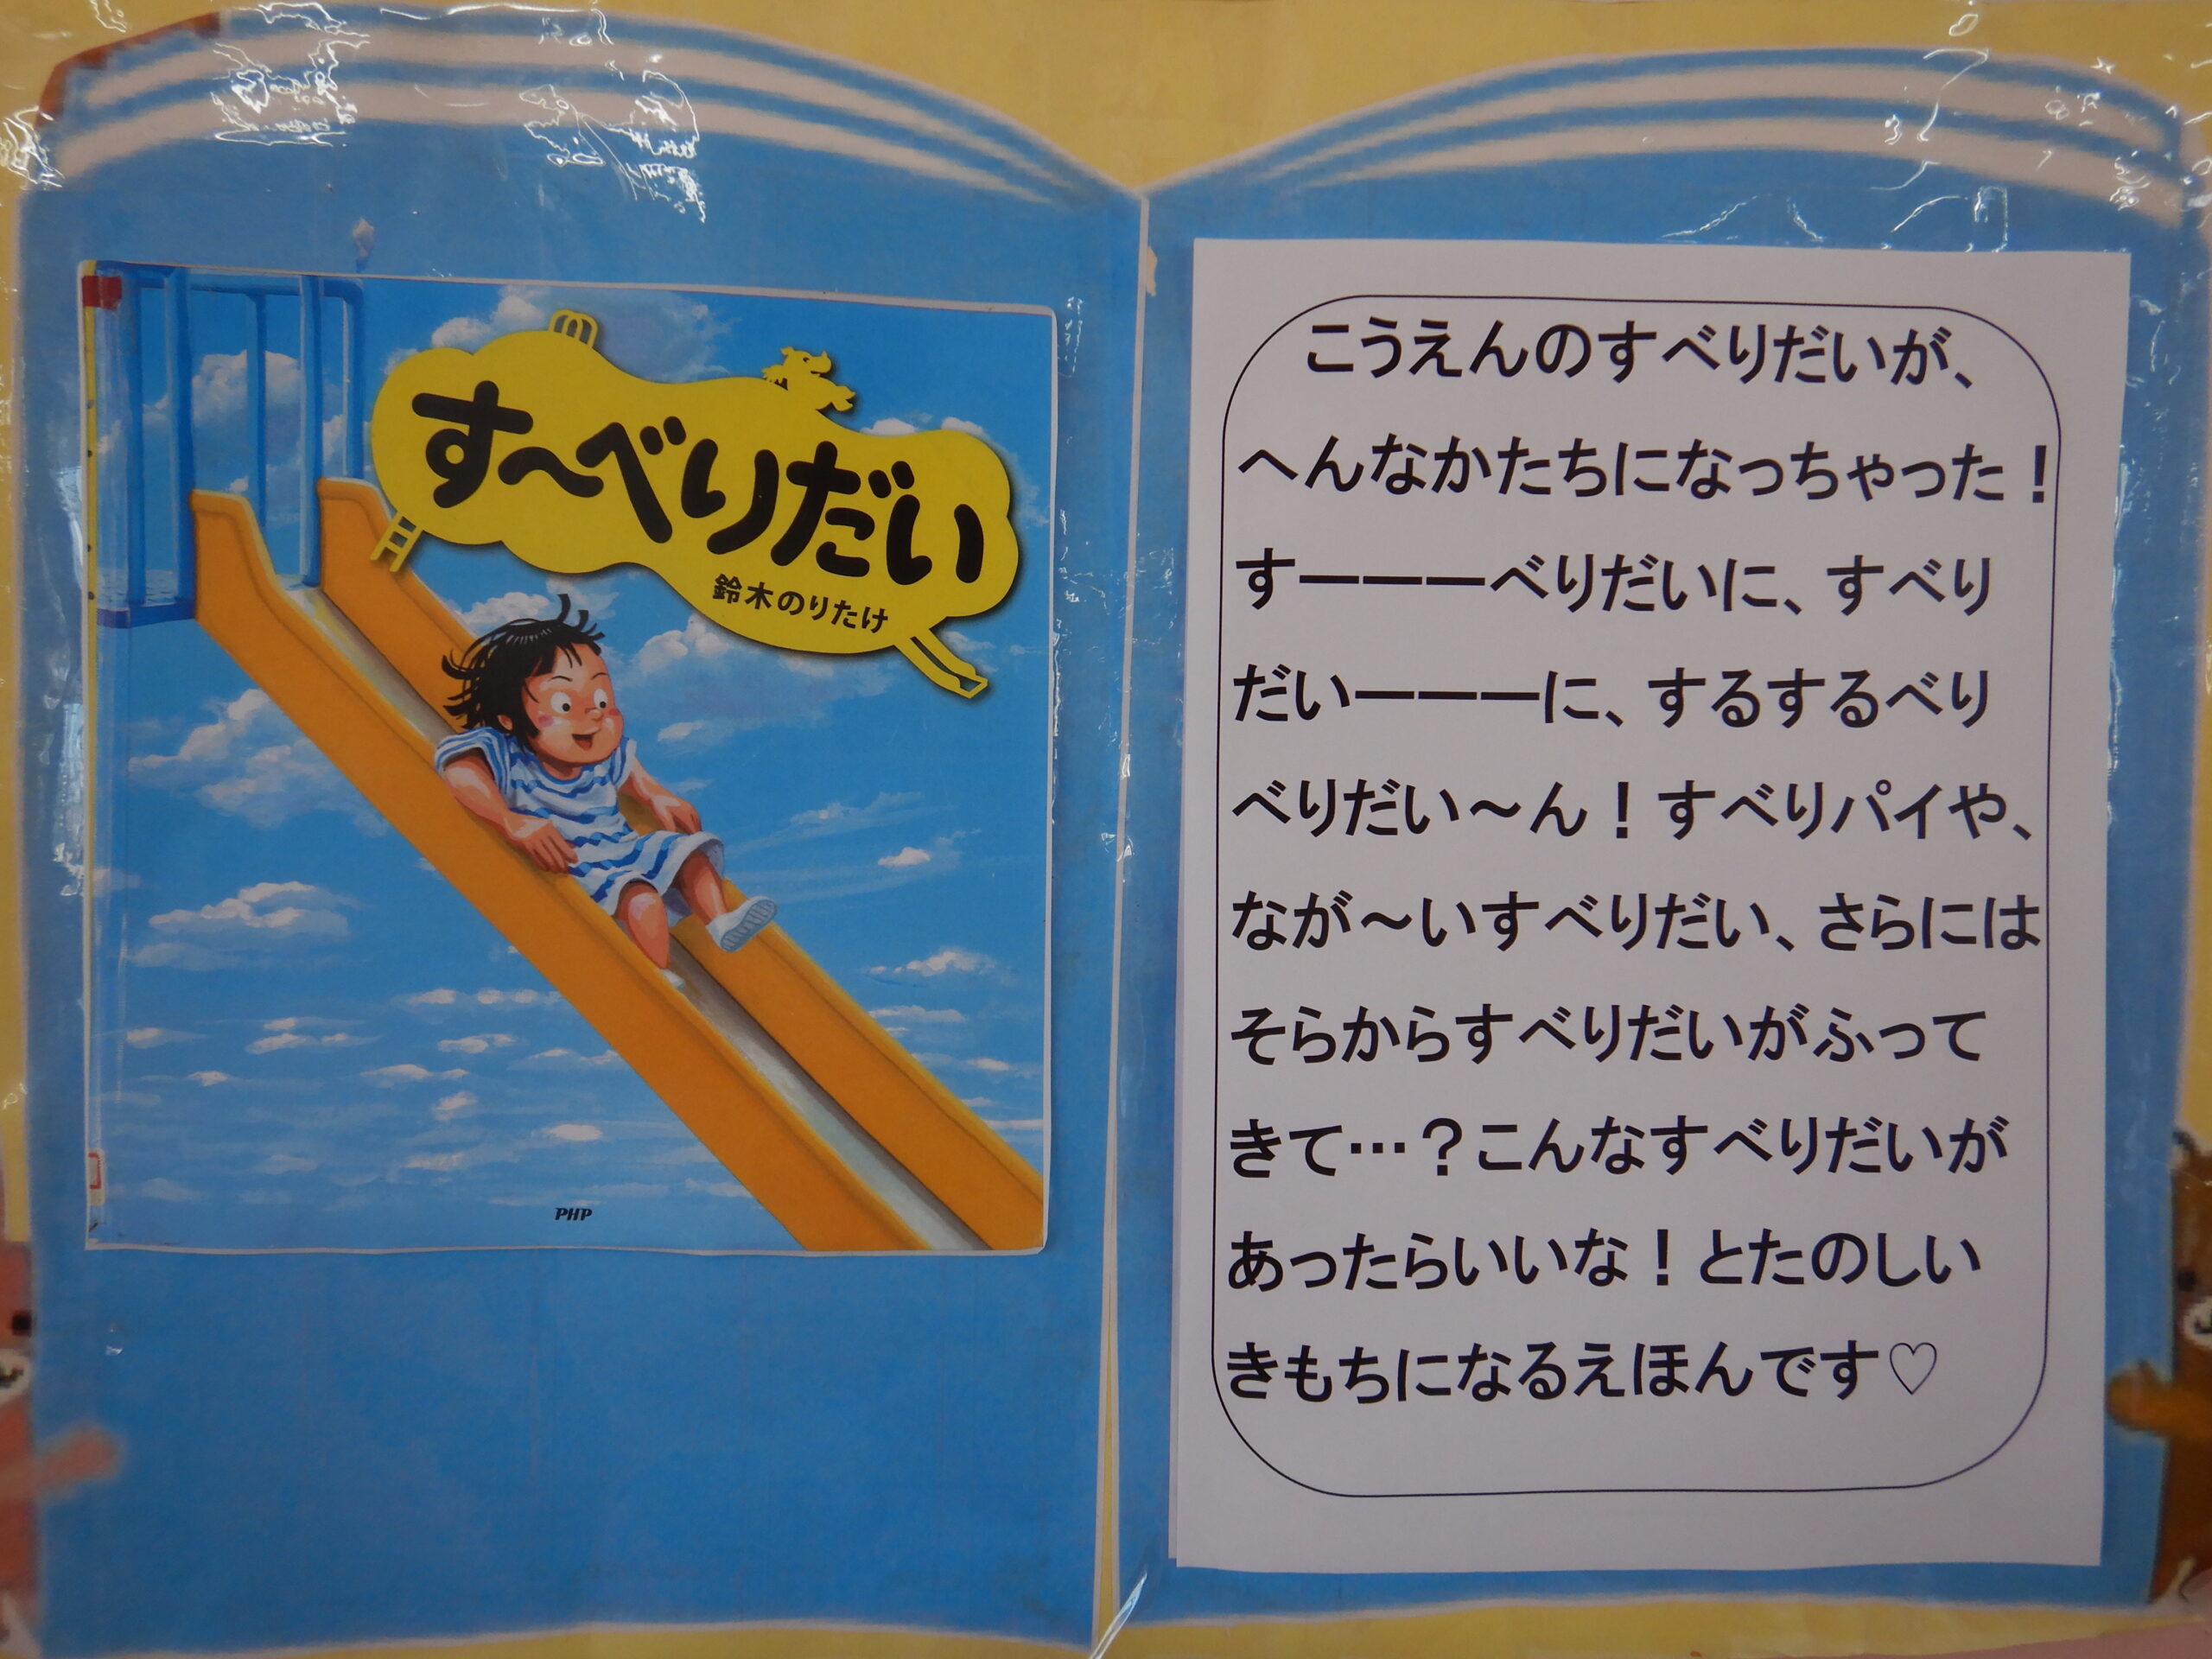 す～べりだい
鈴木のりたけ
PHP
こうえんのすべりだいが、
へんなかたちになっちゃった！
すーーーべりだいに、すべり
だいーーーに、するするべり
べりだい～ん！すべりパイや、
なが～いすべりだい、さらには
そらからすべりだいがふって
きて…？こんなすべりだいが
あったらいいな！とたのしい
きもちになるえほんです♡